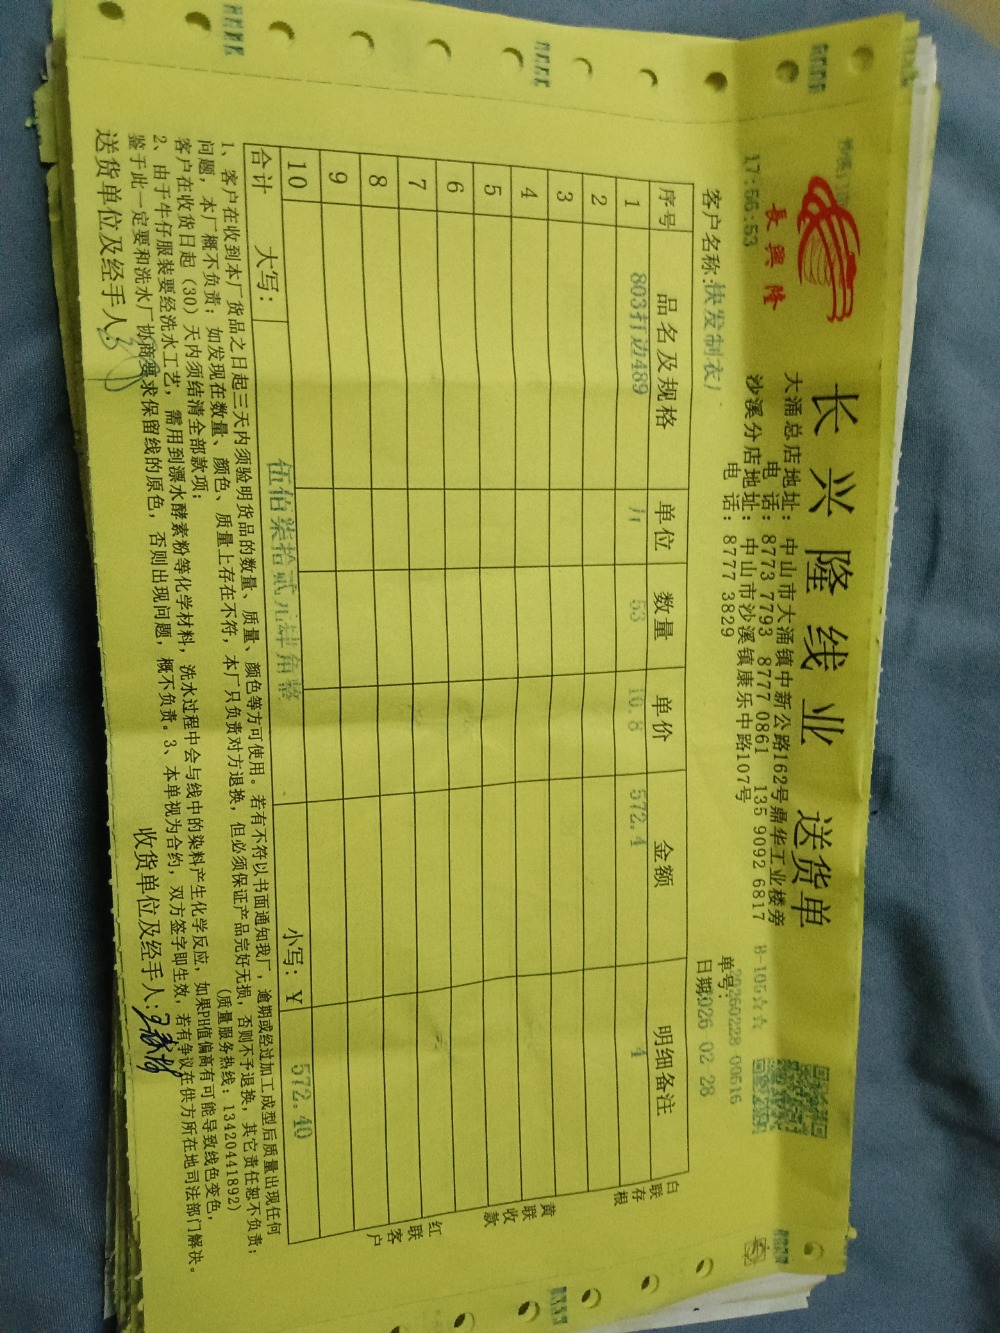 長興隆
长兴隆线业 送货单
大涌总店地址：中山市大涌镇中新公路162号鼎华工业楼旁
电话：8773 7793 8777 0861 135 9092 6817
沙溪分店地址：中山市沙溪镇康乐中路107号
电话：8777 3829
17:56:53
单号：20260228 00516
客户名称：快发制衣厂
日期：2026 02 28
序号 品名及规格 单位 数量 单价 金额 明细备注
1 803打边489 53 10.8 572.4 4
2
3
4
5
6
7
8
9
10
合计 大写：伍佰柒拾贰元肆角整 小写：Y 572.40
白联存根
黄联收款
红联客户
1、客户在收到本厂货品之日起三天内须验明货品的数量、质量、颜色等方可使用。若有不符以书面通知我厂，逾期或经过加工成型后质量出现任何
问题，本厂概不负责；如发现在数量、颜色、质量上存在不符，本厂只负责对方退换，但必须保证产品完好无损，否则不予退换，其它责任恕不负责；
客户在收货日起（30）天内须结清全部款项； （质量服务热线：13420441892）
2、由于牛仔服装要经洗水工艺，需用到漂水酵素粉等化学材料，洗水过程中会与线中的染料产生化学反应，如果PH值偏高有可能导致线色变色，
鉴于此一定要和洗水厂协商要求保留线的原色，否则出现问题，概不负责。3、本单视为合约，双方签字即生效，若有争议在供方所在地司法部门解决。
送货单位及经手人：
收货单位及经手人：